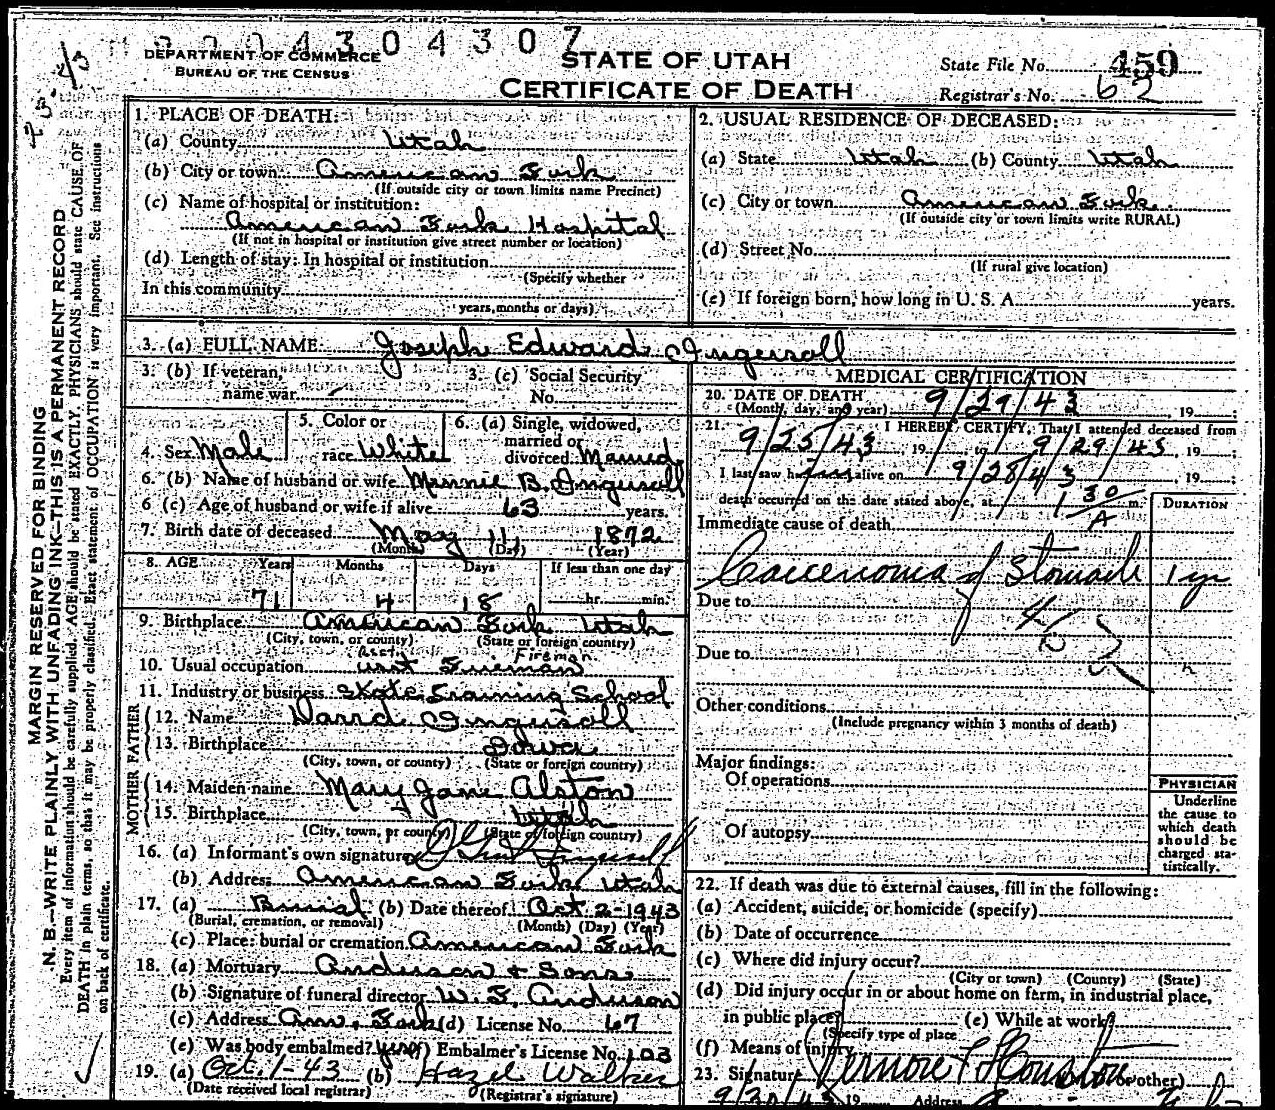 0004304307
DEPARTMENT OF COMMERCE
BUREAU OF THE CENSUS
STATE OF UTAH
CERTIFICATE OF DEATH
State File No. 459
Registrar's No. 62
MARGIN RESERVED FOR BINDING
N. B.—WRITE PLAINLY WITH UNFADING INK—THIS IS A PERMANENT RECORD
Every item of information should be carefully supplied. AGE should be stated EXACTLY. PHYSICIANS should state CAUSE OF
DEATH in plain terms, so that it may be properly classified. Exact statement of OCCUPATION is very important. See instructions
on back of certificate.
1. PLACE OF DEATH:
(a) County Utah
(b) City or town American Fork
(If outside city or town limits name Precinct)
(c) Name of hospital or institution:
American Fork Hospital
(If not in hospital or institution give street number or location)
(d) Length of stay: In hospital or institution
(Specify whether
In this community
years, months or days)
2. USUAL RESIDENCE OF DECEASED:
(a) State Utah (b) County Utah
(c) City or town American Fork
(If outside city or town limits write RURAL)
(d) Street No.
(If rural give location)
(e) If foreign born, how long in U. S. A. years.
3. (a) FULL NAME: Joseph Edward Ingersoll
3. (b) If veteran, name war
3. (c) Social Security No.
4. Sex Male
5. Color or race White
6. (a) Single, widowed, married or divorced Married
6. (b) Name of husband or wife Minnie B. Ingersoll
6 (c) Age of husband or wife if alive 63 years.
7. Birth date of deceased May 11, 1872
(Month) (Day) (Year)
8. AGE Years Months Days If less than one day
71 4 18 hr. min.
9. Birthplace American Fork Utah
(City, town, or county) (State or foreign country)
Asst. Fireman
10. Usual occupation asst Fireman
11. Industry or business State Training School
FATHER
12. Name David Ingersoll
13. Birthplace Iowa
(City, town, or county) (State or foreign country)
MOTHER
14. Maiden name Mary Jane Alston
15. Birthplace Utah
(City, town, or county) (State or foreign country)
16. (a) Informant's own signature Ingersoll
(b) Address American Fork Utah
17. (a) Burial (b) Date thereof Oct. 2-1943
(Burial, cremation, or removal) (Month) (Day) (Year)
(c) Place: burial or cremation American Fork
18. (a) Mortuary Anderson & Sons
(b) Signature of funeral director W. F. Anderson
(c) Address Am. Fork (d) License No. 67
(e) Was body embalmed? yes (f) Embalmer's License No. 103
19. (a) Oct. 1-43 (b) Hazel Walker
(Date received local registrar) (Registrar's signature)
MEDICAL CERTIFICATION
20. DATE OF DEATH
(Month, day, and year) 9/29/43, 19
21. I HEREBY CERTIFY, That I attended deceased from
9/25/43, 19 to 9/29/43, 19
I last saw him alive on 9/28/43, 19
death occurred on the date stated above, at 1 30 A m.
DURATION
Immediate cause of death
Carcenoma of Stomach 1 yr
Due to
Due to
Other conditions
(Include pregnancy within 3 months of death)
Major findings:
Of operations
Of autopsy
PHYSICIAN
Underline
the cause to
which death
should be
charged sta-
tistically.
22. If death was due to external causes, fill in the following:
(a) Accident, suicide, or homicide (specify)
(b) Date of occurrence
(c) Where did injury occur?
(City or town) (County) (State)
(d) Did injury occur in or about home on farm, in industrial place,
in public place? (e) While at work?
(Specify type of place
(f) Means of injury
23. Signature Vernon F Houston or other)
9/30/43 19 Address